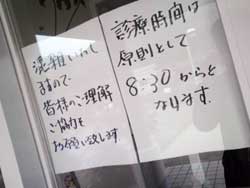 診療時間は
原則として
8:30からと
なります.
混雑いたし
ますので
皆様のご理解
ご協力を
お願い致します